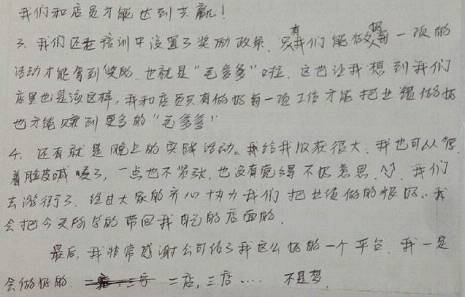 我们和店员才能达到共赢！
3. 我们还在培训中设置了奖励政策，只有我们能够做好每一项的
活动才能拿到奖励，也就是“毛爷爷”啦，这也让我想到我们
店里也是该这样，我和店员只有做好每一项工作才能把业绩做好
也才能赚到更多的“毛爷爷”
4. 还有就是晚上的实践活动，我给我收获很大，我也可以厚
着脸皮喊麦了，一点也不紧张，也没有觉得不好意思，我们
去游行了，经过大家的齐心协力我们把业绩做的很好，我
会把今天所学的带回我自己的店面的
最后，我非常感谢公司给了我这么好的一个平台，我一定
会做好的 二店，三店…… 不是梦